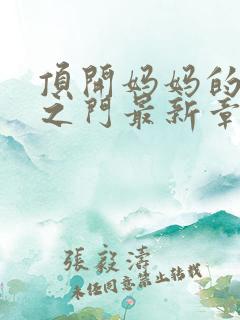 頂開妈妈的
之门最新章
張毅濤
未经同意禁止转载